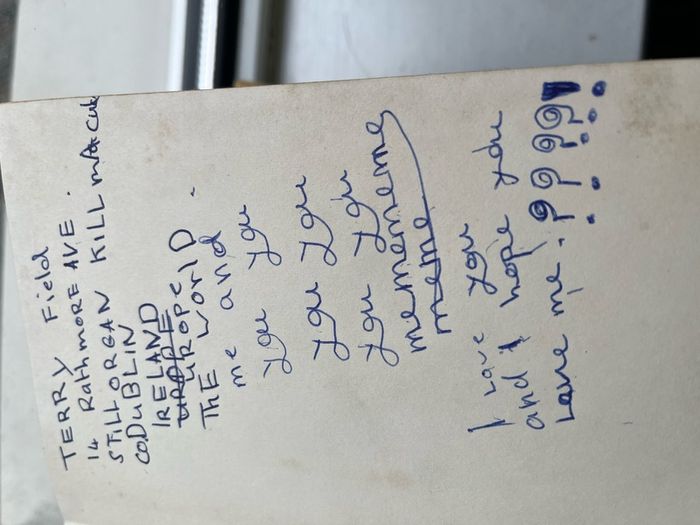 TERRY Field
14 Rathmore AVE.
STILLORGAN KILLmAcud
CO DUBLIN
IRELAND
UROPE
THE WORlD.
me and
you you
you you
you you
memememe
meme
I Love you
and I hope you
Love me. ????!